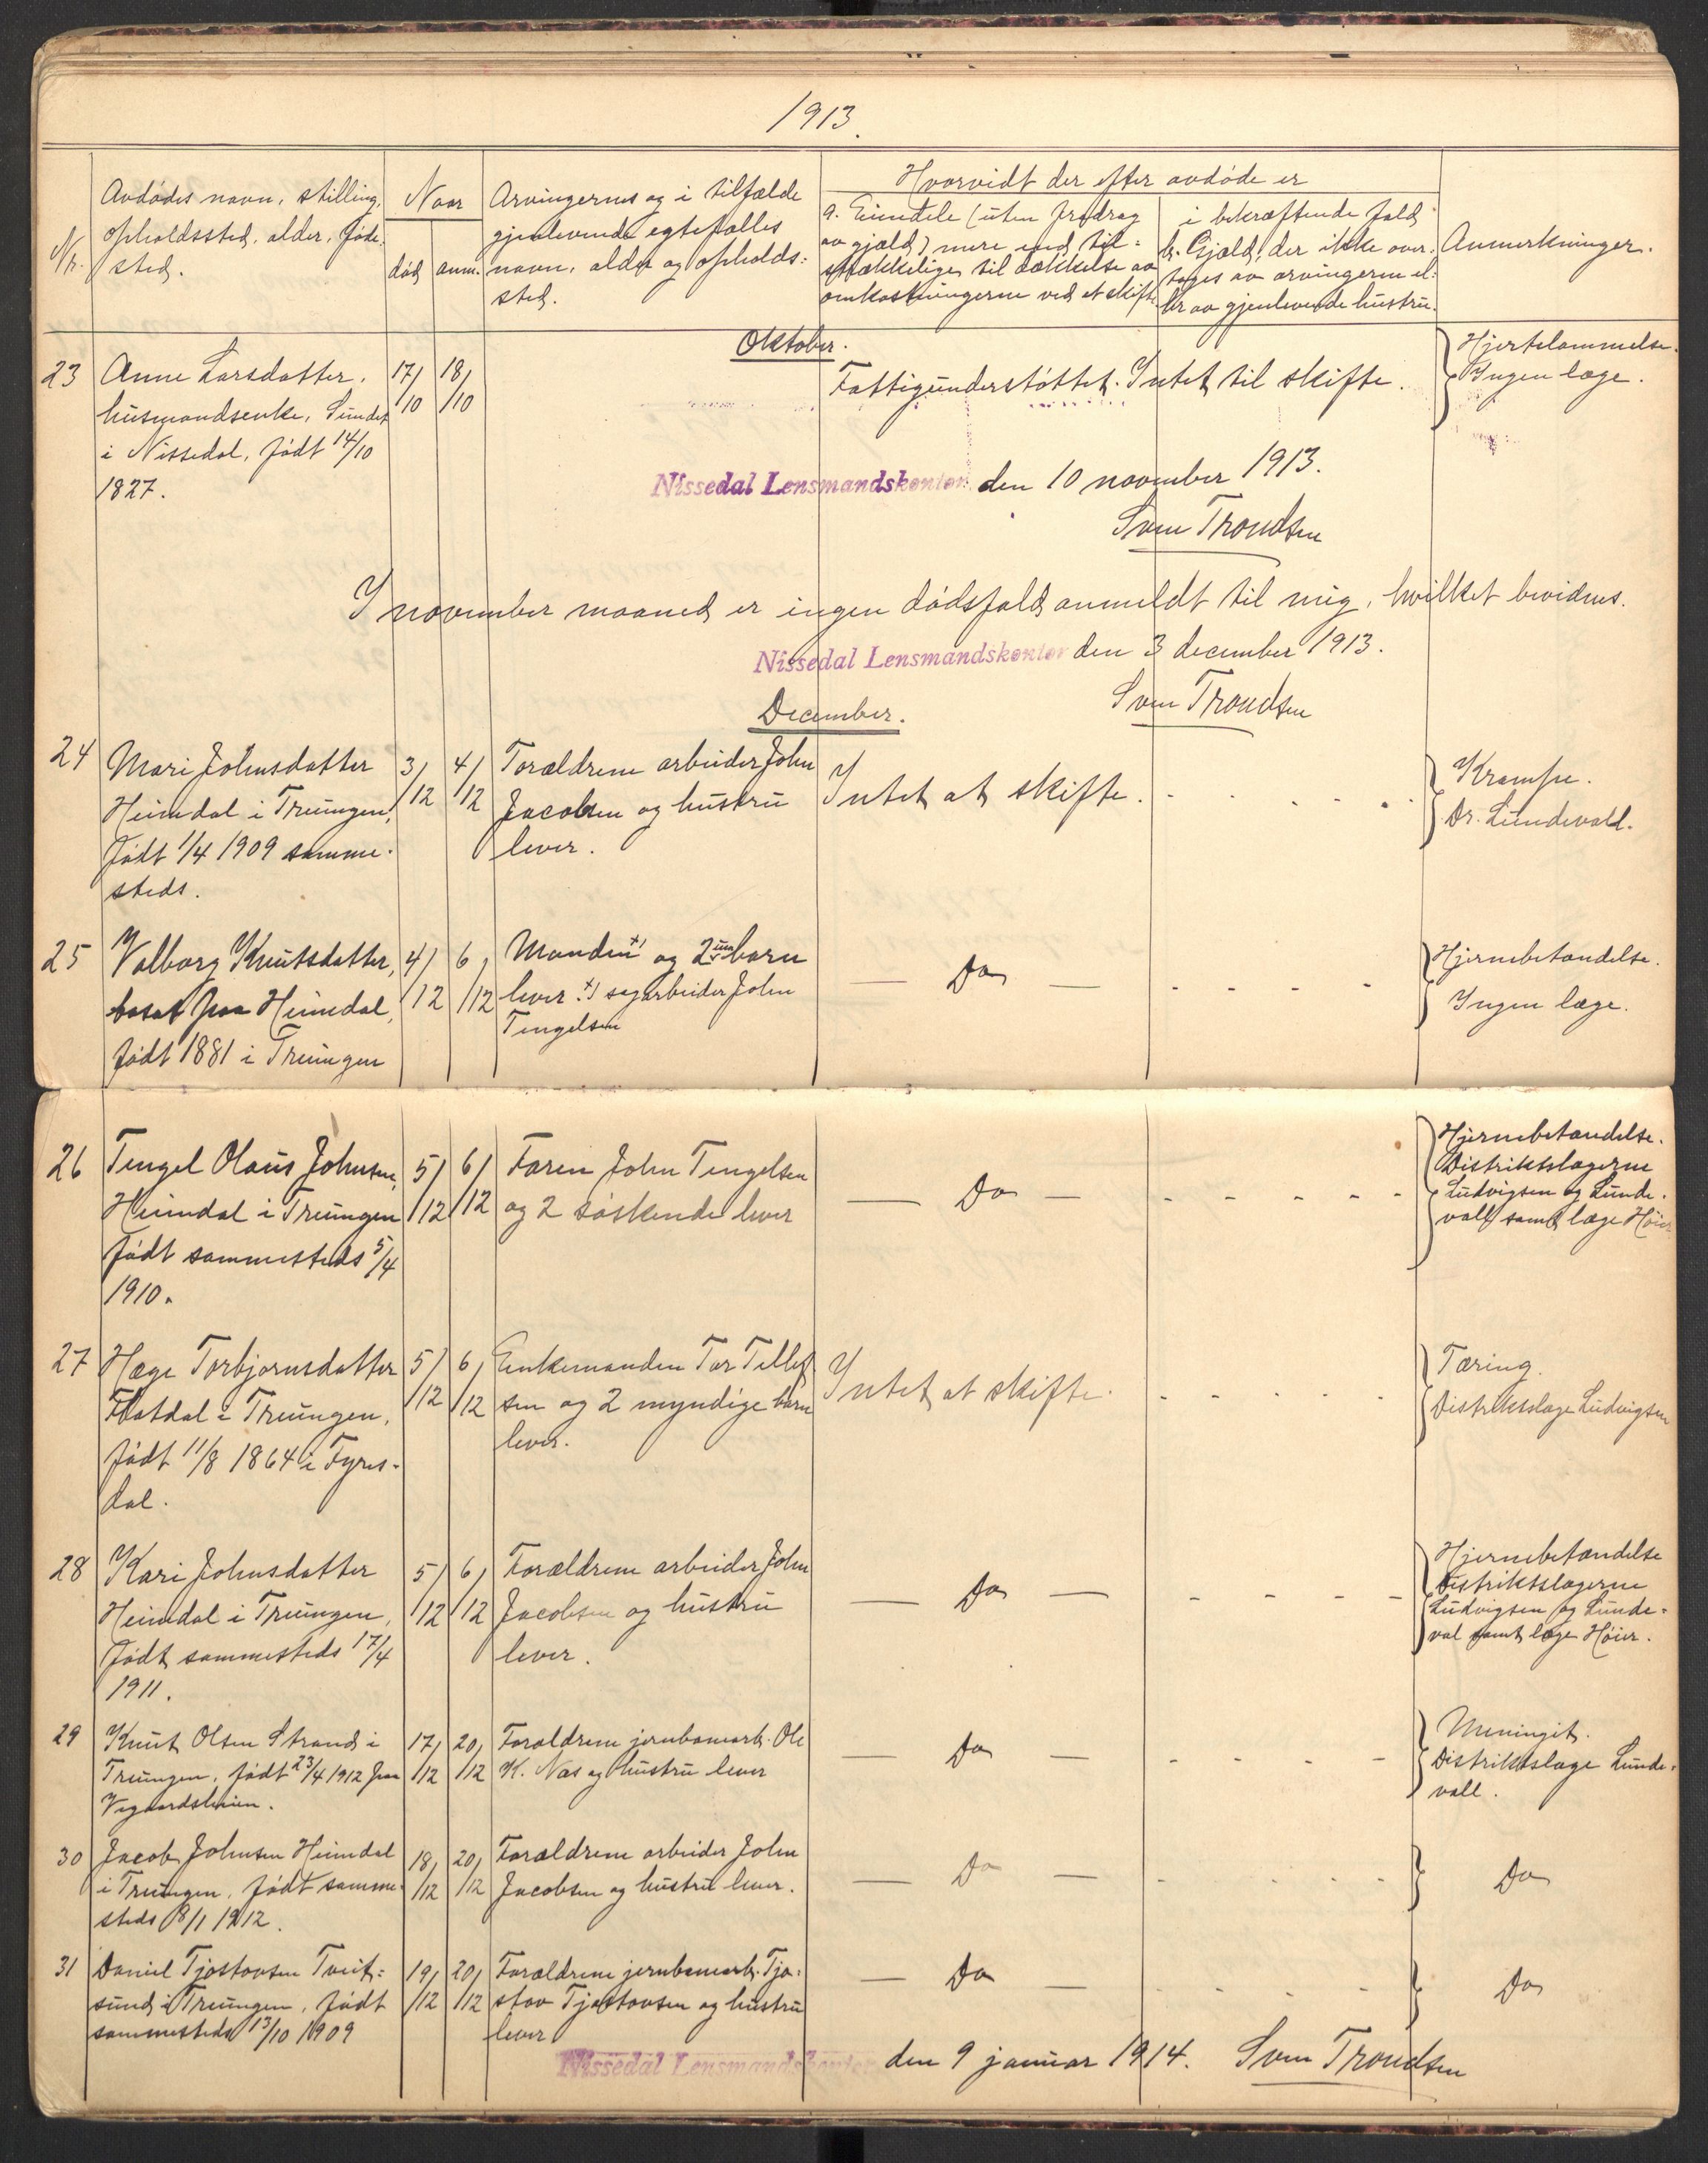 1913.
Nr.
Avdødes navn, stilling,
opholdssted, alder, føde-
sted.
Naar
død
anm.
Arvingernes og i tilfælde
gjenlevende egtefælles
navn, alder og opholds-
sted.
Hvorvidt der efter avdøde er
a. Eiendele (uten fradrag
av gjæld) mere end til-
strækkelige til dækkelse av
omkostningerne ved et skifte
i bekræftende fald
b. Gjæld, der ikke over-
tages av arvingerne el-
ler av gjenlevende hustru.
Anmerkninger.
Oktober.
23
Anne Larsdatter,
husmandsenke, Sundet
i Nissedal, født 14/10
1827.
17/10
18/10
Fattigunderstøttet. Intet til skifte.
Hjertelammelse.
Ingen læge.
Nissedal Lensmandskontor den 10 november 1913.
Sven Trondsen
I november maaned er ingen dødsfald anmeldt til mig, hvilket bevidnes.
Nissedal Lensmandskontor den 3 december 1913.
Sven Trondsen
December.
24
Mari Johnsdatter
Heimdal i Treungen,
født 1/4 1909 samme-
steds.
3/12
4/12
Forældrene arbeider John
Jacobsen og hustru
lever.
Intet at skifte. - - - - -
Krampe.
Dr. Lundevald.
25
Valborg Knutsdatter,
bosat paa Heimdal,
født 1881 i Treungen
4/12
6/12
Manden +) og 2 um. barn
lever. +) sagarbeider John
Tengelsen
— Do — - - - -
Hjernebetændelse.
Ingen læge.
26
Tengel Olaus Johnsen,
Heimdal i Treungen
født sammesteds 5/4
1910.
5/12
6/12
Faren John Tengelsen
og 2 søskende lever
— Do — - - - - -
Hjernebetændelse.
Distriktslægerne
Ludvigsen og Lunde-
vall samt læge Høier
27
Hæge Torbjørnsdatter
Flatdal i Treungen,
født 11/8 1864 i Fyres-
dal.
5/12
6/12
Enkemanden Tor Tellef
sen og 2 myndige barn
lever.
Intet at skifte. - - - -
Tæring.
Distriktslæge Ludvigsen
28
Kari Johnsdatter
Heimdal i Treungen,
født sammesteds 17/4
1911.
5/12
6/12
Forældrene arbeider John
Jacobsen og hustru
lever.
— Do — - - - -
Hjernebetændelse
Distriktslægerne
Ludvigsen og Lunde-
val samt læge Høier.
29
Knut Olsen Strand i
Treungen, født 23/4 1912 paa
Vegaardsheien.
17/12
20/12
Forældrene jernbanearb. Ole
K. Næs og hustru lever
— Do — - - - -
Meningit.
Distriktslæge Lunde-
vall.
30
Jacob Johnsen Heimdal
i Treungen, født samme-
steds 8/1 1912.
18/12
20/12
Forældrene arbeider John
Jacobsen og hustru lever.
— Do — - - - -
Do
31
Daniel Tjøstovsen Tveit-
sund i Treungen, født
sammesteds 13/10 1909
19/12
20/12
Forældrene jernbanearb. Tjø-
stov Tjøstovsen og hustru
lever
— Do — - - - -
Do
Nissedal Lensmandskontor den 9 januar 1914. Sven Trondsen